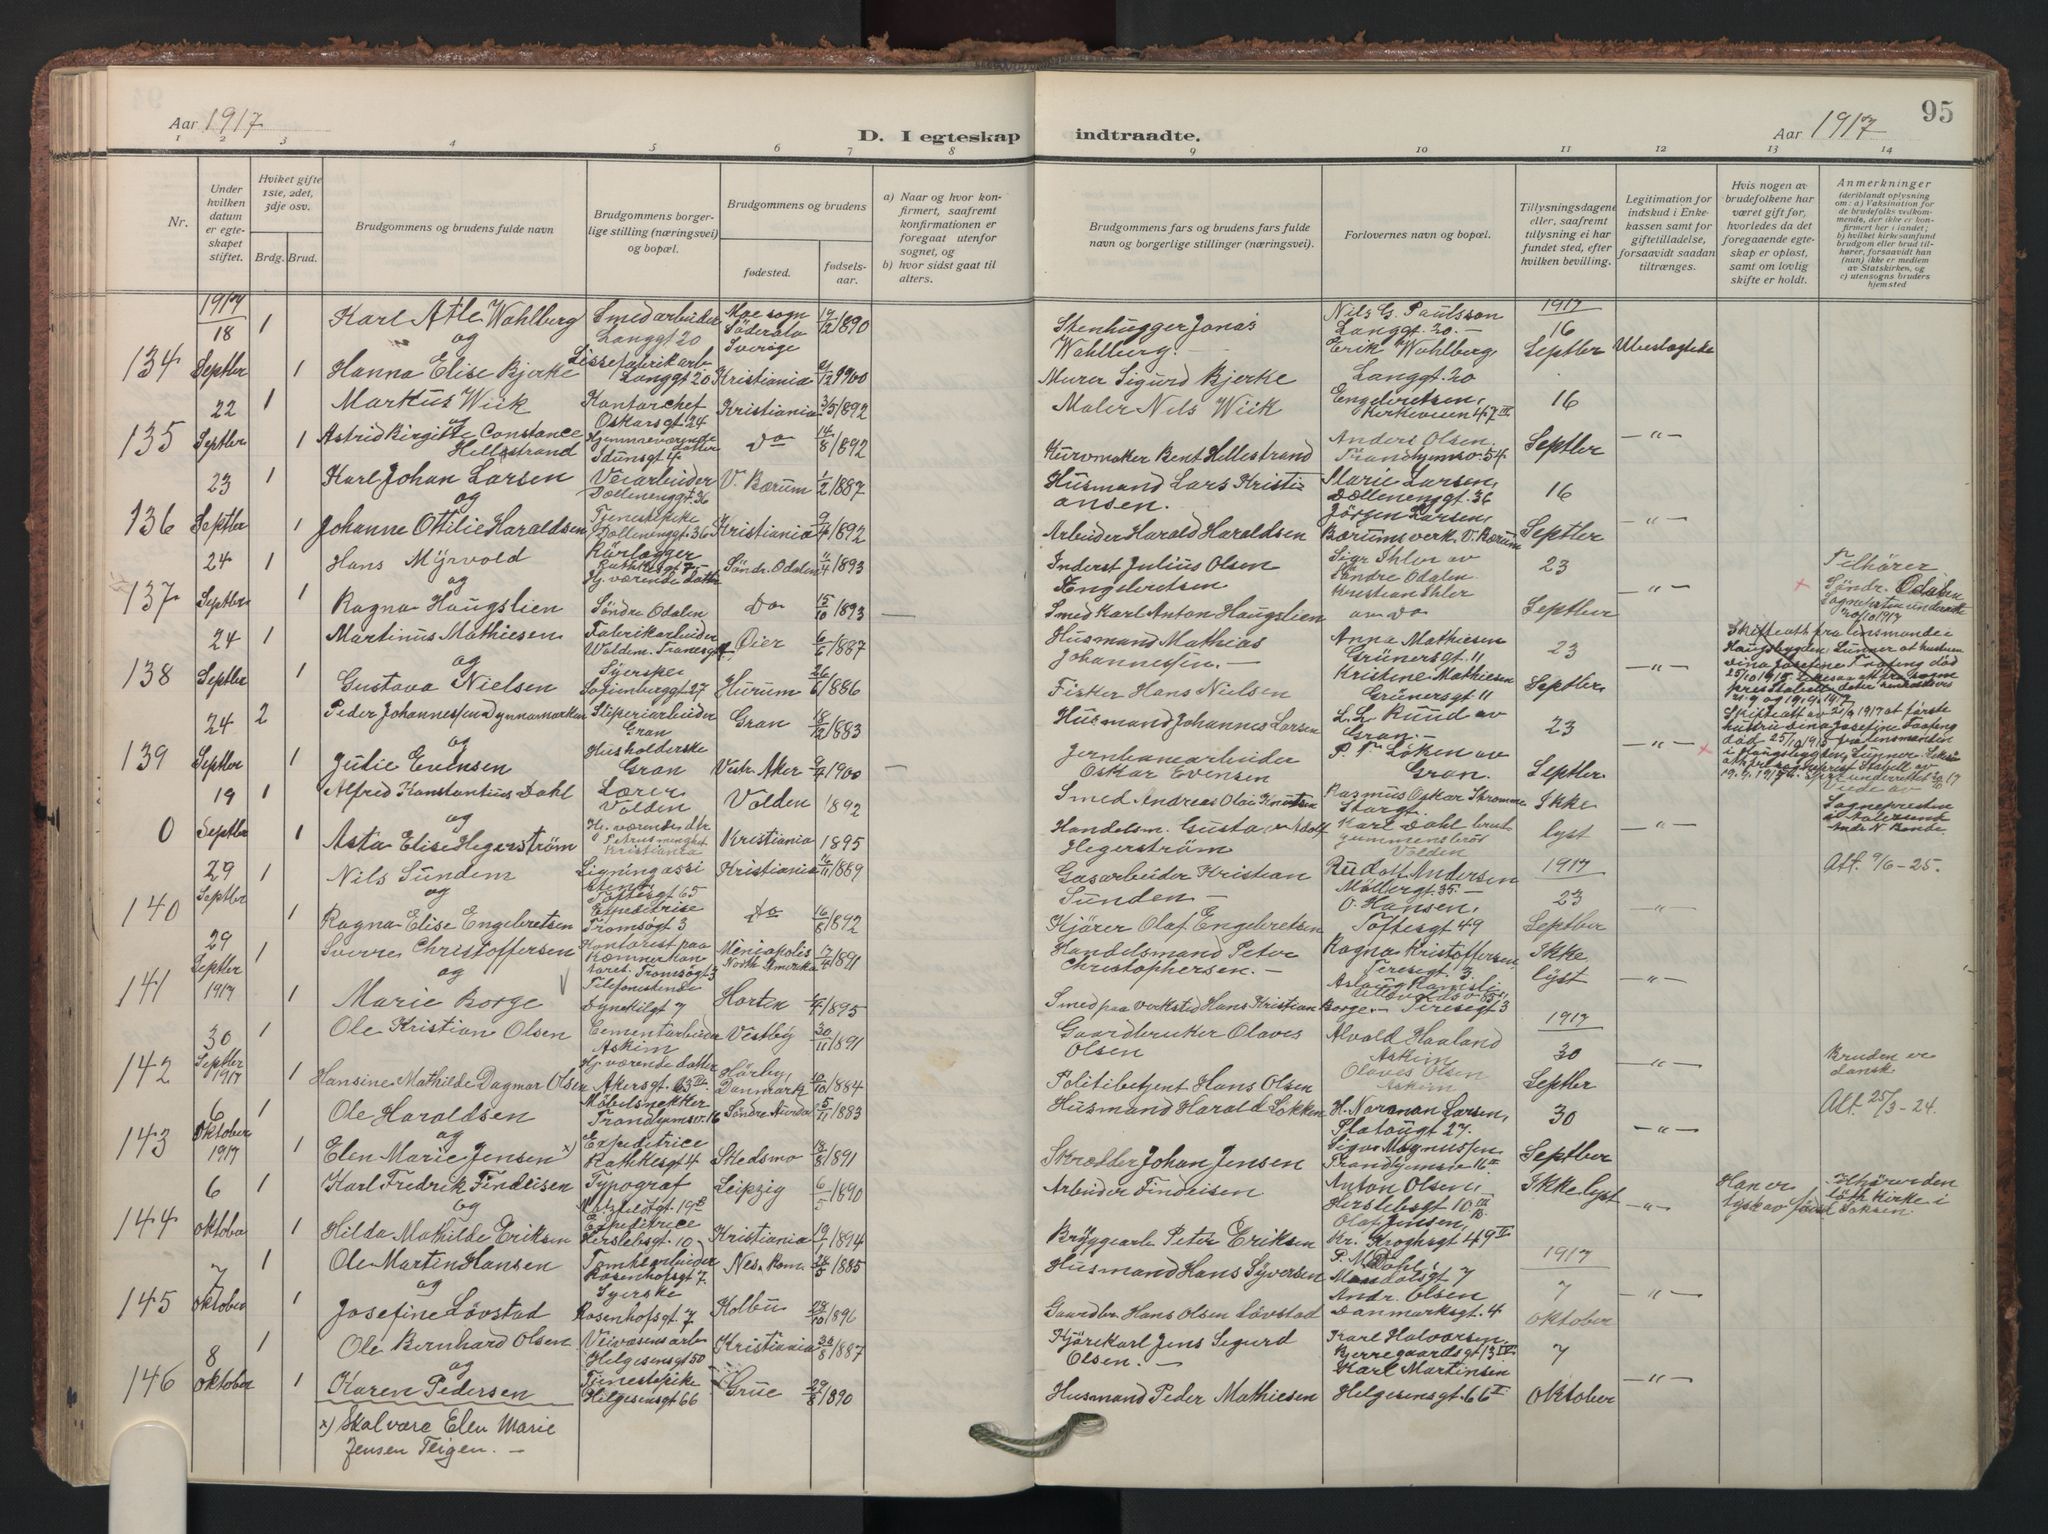 95
Aar 1917
D. I egteskap indtraadte.
Aar 1917
1 2 3 4 5 6 7 8 9 10 11 12 13 14
Nr.
Under hvilken datum er egteskapet stiftet.
Hvilket gifte 1ste, 2det, 3dje osv.
Brdg. Brud.
Brudgommens og brudens fulde navn
Brudgommens borgerlige stilling (næringsvei) og bopæl.
Brudgommens og brudens
fødested.
fødselsaar.
a) Naar og hvor konfirmert, saafremt konfirmationen er foregaat utenfor sognet, og
b) hvor sidst gaat til alters.
Brudgommens fars og brudens fars fulde navn og borgerlige stillinger (næringsvei).
Forlovernes navn og bopæl.
Tillysningsdagene eller, saafremt tillysning ei har fundet sted, efter hvilken bevilling.
Legitimation for indskud i Enkekassen samt for giftetilladelse, forsaavidt saadan tiltrænges.
Hvis nogen av brudefolkene har været gift før, hvorledes da det foregaaende egteskap er opløst, samt om lovlig skifte er holdt.
Anmerkninger (deriblandt oplysning om: a) Vaksination for de brudefolks vedkommende, der ikke er konfirmert her i landet; b) hvilket kirkesamfund brudgom eller brud tilhører, forsaavidt han (hun) ikke er medlem av Statskirken, og c) utensogns bruders hjemsted
134 1917 18 Septber 1 Karl Atle Wahlberg Smedarbeider Langgt 20 Moe sogn Söderala Sverige 19/12 1890 Stenhugger Jonas Wahlberg. Nils G. Paulsson Langgt. 20. 1917 16 Septber Ubeslegtede
og
1 Hanna Elise Bjerke Langgt 20 Kristiania 1900 Murer Sigurd Bjerke Erik Wahlberg, Langgt. 20
135 22 Septber 1 Markus Wiik Kontorchef Oskarsgt. 24 Kristiania 3/5 1892 Maler Nils Wiik Engebretsen, Kirkeveien 47 III 16 Septber —"—
og
1 Astrid Birgitte Constance Hellestrand Hjemmeværende datter Idunsgt 4 Do 14/8 1892 Kurvmaker Bent Hellestrand Anders Olsen. Trondhjemsv. 54.
136 23 Septber 1 Karl Johan Larsen Veiarbeider Dællenenggt 36 V. Bærum 1/2 1887 Husmand Lars Kristiansen. Marie Larsen, Dællenenggt. 36 16 Septber —"—
og
1 Johanne Ottilie Haraldsen Tjenestepike Dællenenggt. 36 Kristiania 9/7 1892 Arbeider Harald Haraldsen Jörgen Larsen, Bærums verk. V. Bærum
137 24 Septber 1 Hans Myrvold Rörlægger Rathkesgt 7 Söndr. Odalen 11/4 1893 Inderst Julius Olsen Engebretsen Sigr. Ihler av Söndre Odalen. 23 Septber —"— Tilhører Söndr. Odalen
og
1 Ragna Haugslien Hj. værende datter Söndre Odalen Do 15/10 1893 — Smed Karl Anton Haugslien Kristian Ihler av Do Sognepresten underrettet 20/10 1917
138 24 Septber 1 Martinus Mathiesen Fabrikarbeider Waldem. Tranesgt Øier 6/6 1887 Husmand Mathias Johannessen. Anna Mathiesen Grünersgt. 11 23 Septber —"—
og
1 Gustava Nielsen Syerske Sofienberggt. 27 Hurum 26/6 1886 Fisker Hans Nielsen Kristine Mathiesen Grünersgt. 11
139 24 Septber 2 Peder Johannessen Dynnamarken Sliperiarbeider Gran Gran 18/12 1883 Husmand Johannes Larsen L. L. Ruud av Gran. 23 Septber —"— Skifteatt av 21/9 1917 at første hustru Dina Josefine død 25/10 1915 fra lensmanden i Haugsbygden, Lunner.
og
1 Julie Evensen Husholderske Gran Vestr. Aker 9/7 1900 — Jernbanearbeider Oskar Evensen P. T. Løken av Gran.
0 19 Septber 1 Alfred Konstantius Dahl Lærer Volden Volden 1892 Smed Andreas Olai Knutsen Rasmus Oskar Skromme Storgt. Ikke lyst —"— Viede av Sognepresten i Aalesund Ande N. Bonde.
og
1 Asta Elise Hegerström Hj. værende dtr Kristiania Kristiania 1895 Handelsm. Gustav Adolf Hegerström Karl Dahl brudgummens bror Volden
140 29 Septber 1 Nils Sundem Ligningsassistent Toftesgt 65 Kristiania 1889 Gasarbeider Kristian Sunden. Rudolf Andersen Möllergt. 35. 1917 23 Septber —"— Att. 9/6 - 25.
og
1 Ragna Elise Engebretsen Expeditrise Tromsögt 3 Do 16/8 1892 Kjörer Olaf Engebretsen O. Hansen, Toftesgt 49
141 29 Septber 1917 1 Sverre Christoffersen Kontorist paa Kæmnerkontoret. Tromsögt 3 Meniapolis North Amerika 17/4 1891 Handelsmand Peter Christophersen. Ragna Kristoffersen, Teresegt. 3. Ikke lyst —"—
og
1 Marie Borge Telefonistinde Dynekilgt 7 Horten 1895 Smed paa Verksted Hans Kristian Borge. Teresegt 3
142 30 Septber 1917 1 Ole Kristian Olsen Cementarbeider Askim Vestby 30/11 1891 Gaardbruker Olaves Olsen Alvald Haaland Askim 1917 30 Septber —"— Bruden er dansk
1 Hansine Mathilde Dagmar Olsen Hj. værende datter Akersgt. 63 IV Hörby, Danmark 10/10 1884 Politibetjent Hans Olsen Olaves Olsen Askim
143 6 Oktober 1917 1 Ole Haraldsen Möbelsnekker Trondhjemsv. 16 Söndre Aurdal 5/11 1883 Husmand Harald Lökken H. Norman Larsen, Platougt 27. 30 Septber —"— Att. 25/3 - 24.
og
1 Elen Marie Jensen x) Expeditrice Rathkesgt 4 Skedsmo 13/8 1891 Skrædder Johan Jensen Sigv. Magnussen Trondhjemsvie 16 II
144 6 oktober 1 Karl Fredrik Findeisen Typograf Leipzig 6/5 1890 Arbeider Findeisen Anton Olsen, Herslebsgt. 10 III Ikke lyst —"— Han er tysk av fødsel
og
1 Hilda Mathilde Eriksen Expeditrice Herslebsgt. 10 Kristiania 19/1 1894 Bryggearb Peter Eriksen Olaf Jensen, Kr. Kroghsgt 49 II
145 7 oktober 1 Ole Martin Hansen Tomtearbeider Rosenhofsgt 7. Nes. Rom. 24/5 1885 Husmand Hans Syversen P. M. Dahl, Mandalsgt 7 1917 7 oktober —"—
og
1 Josefine Lövstad Syerske Rosenhofsgt. 7 Kolbu 28/10 1896 Gaardbr. Hans Olsen Lövstad Andr. Olsen Danmarksgt. 4
146 8 oktober 1 Ole Bernhard Olsen Veivæsensarb Helgesensgt 50 Kristiania 30/8 1887 Kjörekarl Jens Sigurd Olsen. Karl Halvorsen Bjerregaardsgt 13 IV 7 oktober —"—
og
1 Karen Pedersen Tjenestepike Helgesensgt 66 Grue 29/8 1890 Husmand Peder Mathiesen Karl Martinsen Helgesensgt. 66 I
x) Skal være Elen Marie
Jensen Teigen. —